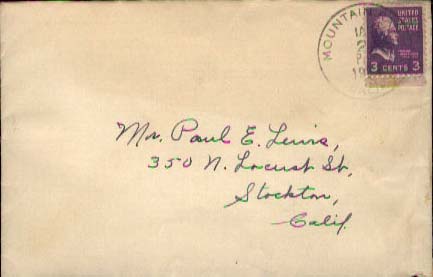 MOUNTAIN
UNITED STATES
POSTAGE
3 CENTS 3
Mr. Paul E. Lewis,
350 N. Locust St,
Stockton,
Calif.